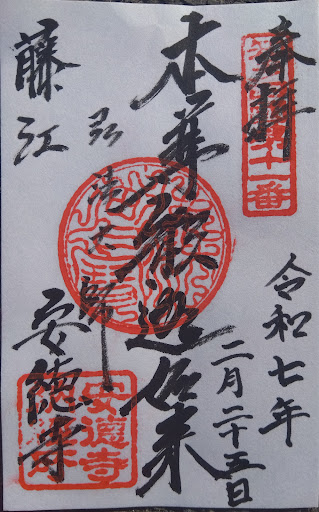 奉拝
十一番
令和七年
二月二十五日
本尊釈迦如来
弘法大師
藤江
安徳寺
安徳寺